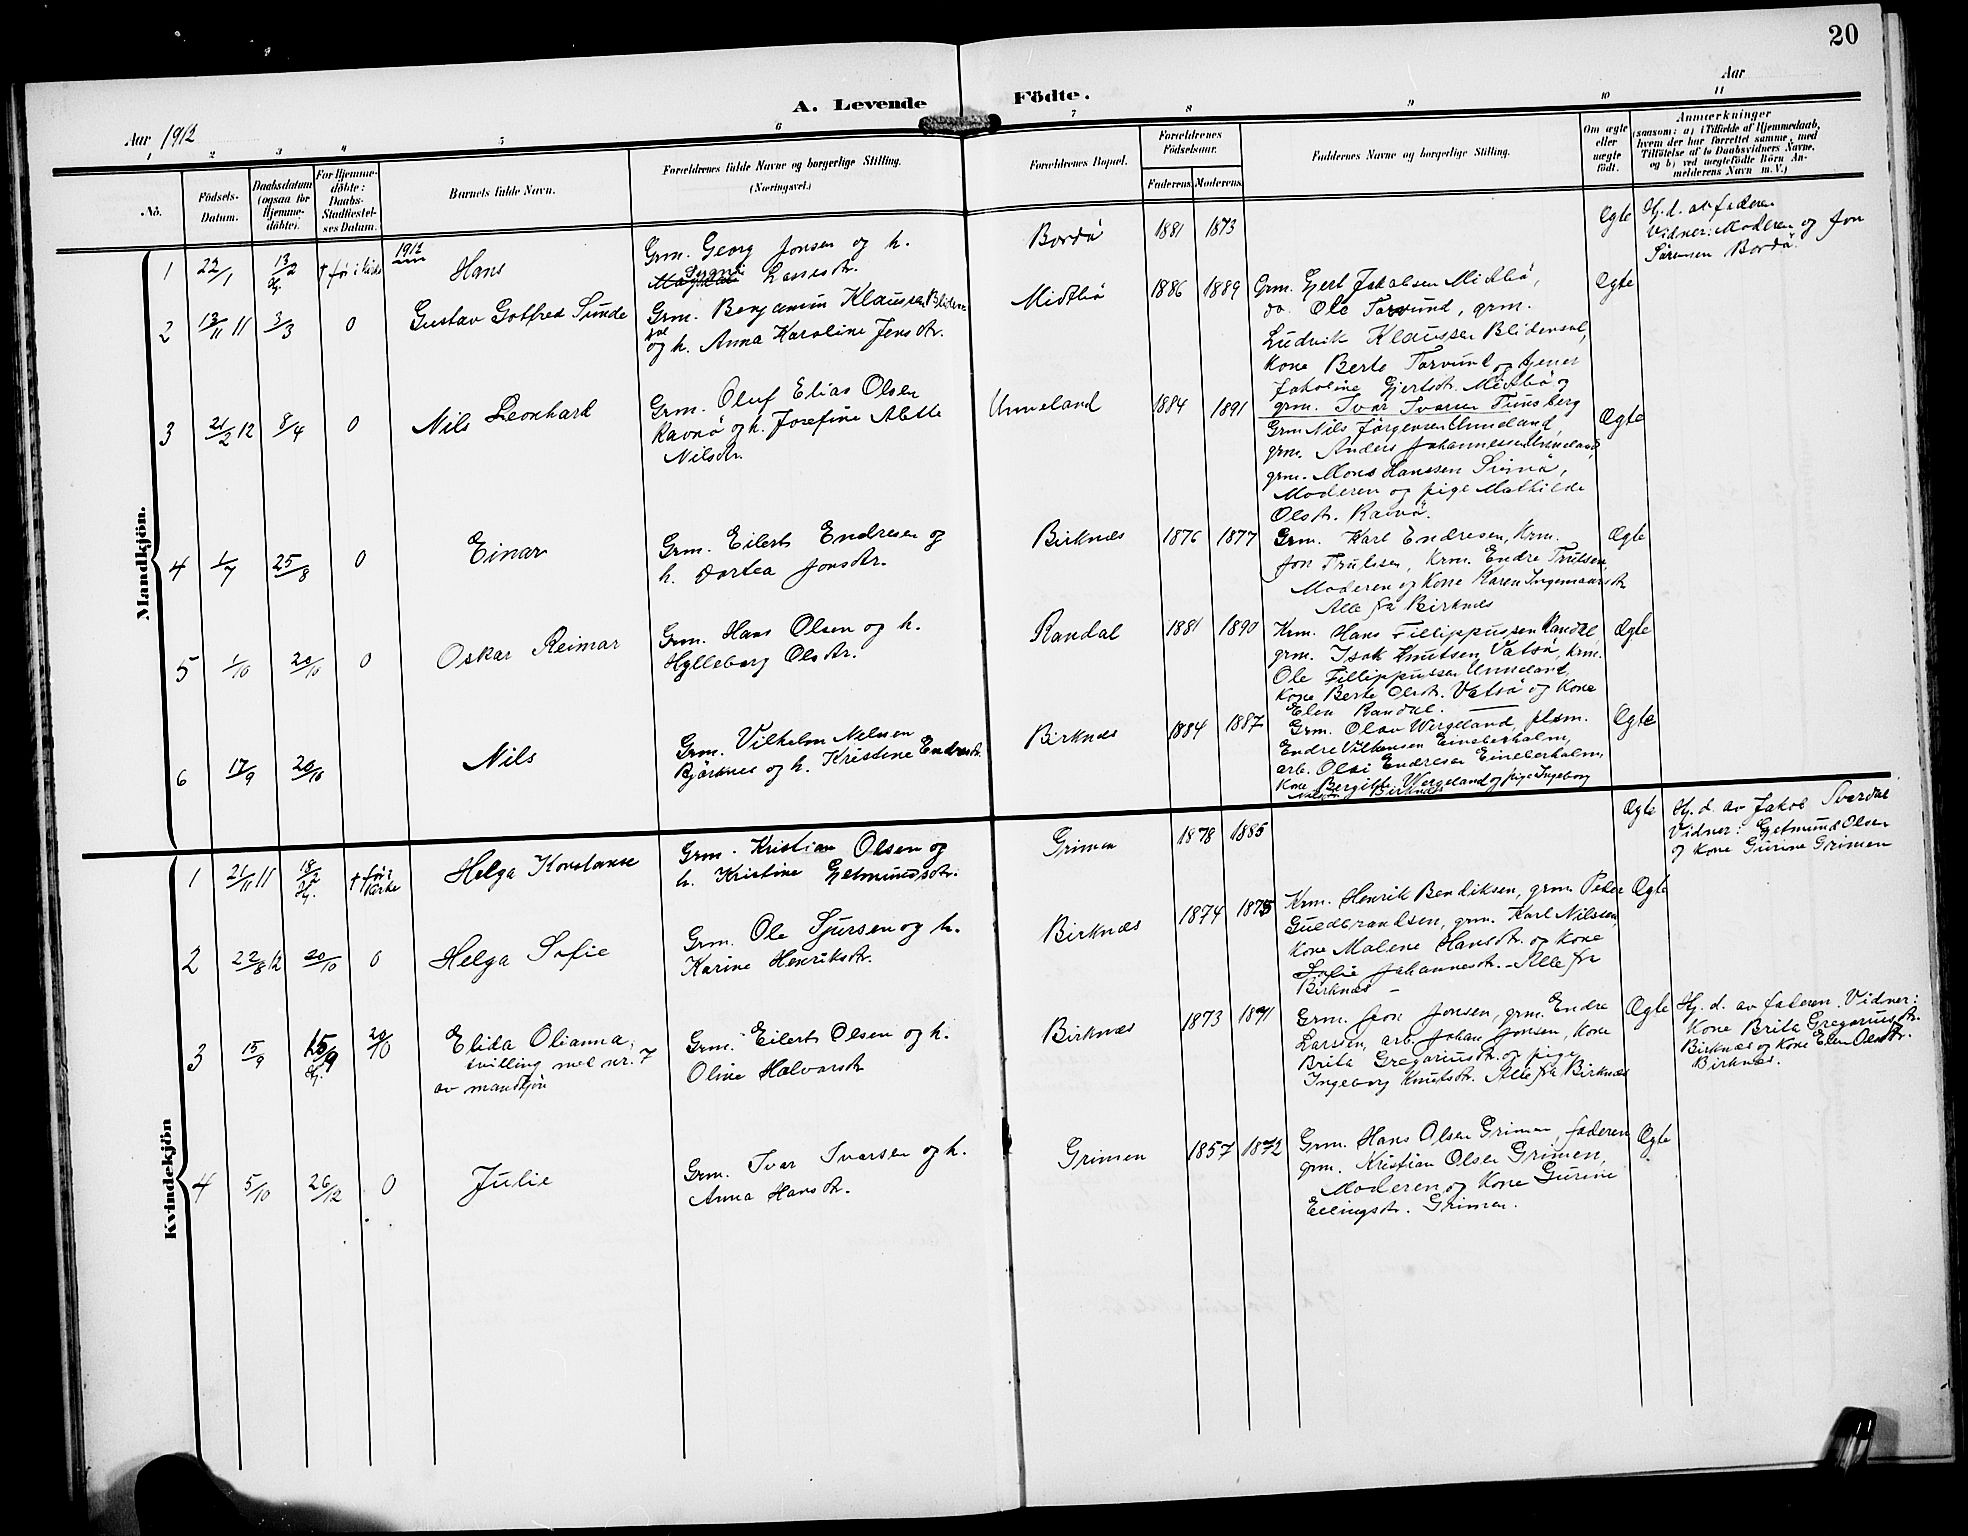 20
A. Levende Födte.
Aar 1912
Aar
1 2 3 4 5 6 7 8 9 10 11
No.
Födsels-Datum.
Daabsdatum (ogsaa for Hjemme-döbte).
For Hjemme-döbte: Daabs-Stadfæstel-ses Datum.
Barnets fulde Navn.
Forældrenes fulde Navne og borgerlige Stilling. (Næringsvei.)
Forældrenes Bopæl.
Forældrenes Födselsaar.
Faderens. Moderens.
Faddernes Navne og borgerlige Stilling.
Om ægte eller uægte födt.
Anmærkninger
(saasom: a) i Tilfælde af Hjemmedaab, hvem der har forrettet samme, med Tilföielse af to Daabsvidners Navne, og b) ved uægtefödte Börn An-melderens Navn m. V.)
Mandkjön.
1912
1 22/1 13/2 Hj. † før i kirke
Hans
Grm. Georg Jonsen og h.
Larsdr.
Bordö 1881 1873
Ægte
Hj. d. av faderen
Vidner: Moderen og Jon
Sörensen Bordö.
2 13/11 11 3/3 0
Gustav Gotfred Sunde
Grm. Benjamin Klaussen Blidens
dal
og h. Anna Karoline Jensdr.
Midtbö 1886 1889
Grm. Gjert Jakobsen Midtbö,
do. Ole Torvund, grm.
Ludvik Klaussen Blidensdal,
Kone Berte Torvund og tjener
Jakoline Gjertsdr. Midtbö og
grm. Ivar Ivarsen Tunsberg
Ægte
3 21/2 12 8/4 0
Nils Leonhard
Grm. Oluf Elias Olsen
Ravnö og h. Josefine Alette
Nilsdr.
Unneland 1884 1891
Grm Nils Jörgensen Unneland,
grm. Anders Johannessen Unneland
grm. Mons Hanssen
Moderen og pige Mathilde
Olsdr. Ravnö.
Ægte
4 1/7 25/8 0
Einar
Grm. Eilert Endresen og
h. Dortea Jonsdr.
Birknes 1876 1877
Grm. Karl Endresen, Krm.
Jon Trulsen, Krm. Endre Trulsen,
Moderen og Kone Karen Ingemannsdr
Alle fra Birknes
Ægte
5 1/10 20/10 0
Oskar Reimar
Grm. Hans Olsen og h.
Hylleborg Olsdr.
Randal 1881 1890
Krm. Hans Fillippussen Randal,
grm. Isak Knutsen Vatsö, krm.
Ole Fillippussen Unneland,
Kone Berte Olsdr. Vatsö og Kone
Elen Randal.
Ægte
6 17/9 20/10
Nils
Grm. Vilhelm Nilsen
Björknes og h. Kristine Endresdr.
Birknes 1884 1887
Grm. Olav Wergeland,
Endre Vilhelmsen
arb. Olai Endresen
Kone Bergitte Wergeland og pige Ingeborg
Birknes
Ægte
Kvindekjön
1 21/11 11 18/2 Hj. † før i kirke
Helga Konstanse
Grm. Kristian Olsen og
h. Kristine Getmundsdr.
Grimen 1878 1885
Ægte
Hj. d. av Jakob Sverdal
Vidner: Getmund Olsen
og Kone Gurine Grimen
2 22/8 12 20/10 0
Helga Sofie
Grm. Ole Sjursen og h.
Karine Henriksdr.
Birknes 1874 1875
Krm. Henrik Bendiksen, grm. Peder
Guldbrandsen, grm. Karl Nilssen,
Kone Malene Hansdr. og Kone
Sofie Johannesdr. – Alle fra
Birknes –
Ægte
3 15/9 15/9 Hj. 20/10
Elida Olianna,
tvilling med nr. 7
av mandkjön
Grm. Eilert Olsen og h.
Oline Halvorsdr
Birknes 1873 1871
Grm. Jon Jonsen, grm. Endre
Larssen, arb. Johan Jonsen, Kone
Brita Gregoriusdr. og pige
Ingeborg Knutsdr. Alle fra Birknes
Ægte
Hj. d. av faderen. Vidner:
Kone Brita Gregoriusdr.
Birknes og Kone Elen Olsdr.
Birknes.
4 5/10 26/12 0
Julie
Grm. Ivar Ivarsen og h.
Anna Hansdr.
Grimen 1857 1872
Grm. Hans Olsen Grimen, faderen
grm. Kristian Olsen Grimen,
Moderen og Kone Gurine
Ellingsdr. Grimen.
Ægte